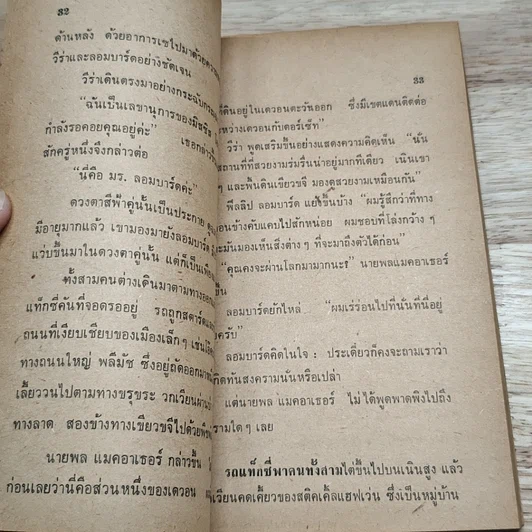 32
ด้านหลัง ด้วยอาการเซไปมาด้วยความ
วีร่าและลอมบาร์ดอย่างชัดเจน
วีร่าเดินตรงมาอย่างกระฉับกระ
“ฉันเป็นเลขานุการของมิสซิส
กำลังรอคอยคุณอยู่ค่ะ” เธอกล่าว
สักครู่หนึ่งจึงกล่าวต่อ
“นี่คือ มร. ลอมบาร์ดค่ะ”
ดวงตาสีฟ้าคู่นั้นเป็นประกาย
มีอายุมากแล้ว เขามองมายังลอมบาร์ด
แว่บขึ้นมาในดวงตาคู่นั้น แต่ก็เป็นเพียง
ทั้งสามคนต่างเดินมาตามทางออก
แท็กซี่คันที่จอดรออยู่ รถถูกสตาร์ดและ
ถนนที่เงียบเชียบของเมืองเล็กๆ เช่น
ทางถนนใหญ่ พลีมัช ซึ่งอยู่ถัดออกมา
เลี้ยววนไปตามทางขรุขระ วกเวียนผ่าน
ทางลาด สองข้างทางเขียวขจีไปด้วย
นายพล แมคอาเธอร์ กล่าวขึ้น
ก่อนเลยว่านี่คือส่วนหนึ่งของเดวอน
33
ที่ดินอยู่ในเดวอนตะวันออก ซึ่งมีเขตแดนติดต่อ
ระหว่างเดวอนกับดอร์เซ็ท”
วีร่า พูดเสริมขึ้นอย่างแสดงความคิดเห็น “นั่น
สถานที่ที่สวยงามร่มรื่นน่าอยู่มากทีเดียว เนินเขา
ๆ และพื้นดินเขียวขจี มองดูสวยงามเหมือนกัน”
ฟิลลิป ลอมบาร์ด แย้งขึ้นบ้าง “ผมรู้สึกว่าที่ทาง
ค่อนข้างคับแคบไปสักหน่อย ผมชอบที่โล่งกว้าง ๆ
จะมันมองเห็นสิ่งต่าง ๆ ที่จะมาถึงตัวได้ก่อน”
“คุณเคงจะผ่านโลกมามากนะ?” นายพลแมคอาเธอร์
ขึ้น
ลอมบาร์ดยักไหล่ “ผมเร่ร่อนไปที่นั่นที่นี่อยู่
ครับ”
ลอมบาร์ดคิดในใจ : ประเดี๋ยวก็คงจะถามเราว่า
เกิดทันสงครามนั่นหรือเปล่า
แต่นายพล แมคอาเธอร์ ไม่ได้พูดพาดพิงไปถึง
สงครามใดๆ เลย
รถแท็กซี่พาคนทั้งสามไต่ขึ้นไปบนเนินสูง แล้ว
เวียนคดเคี้ยวของสติคเคิ้ลแฮฟเว่น ซึ่งเป็นหมู่บ้าน